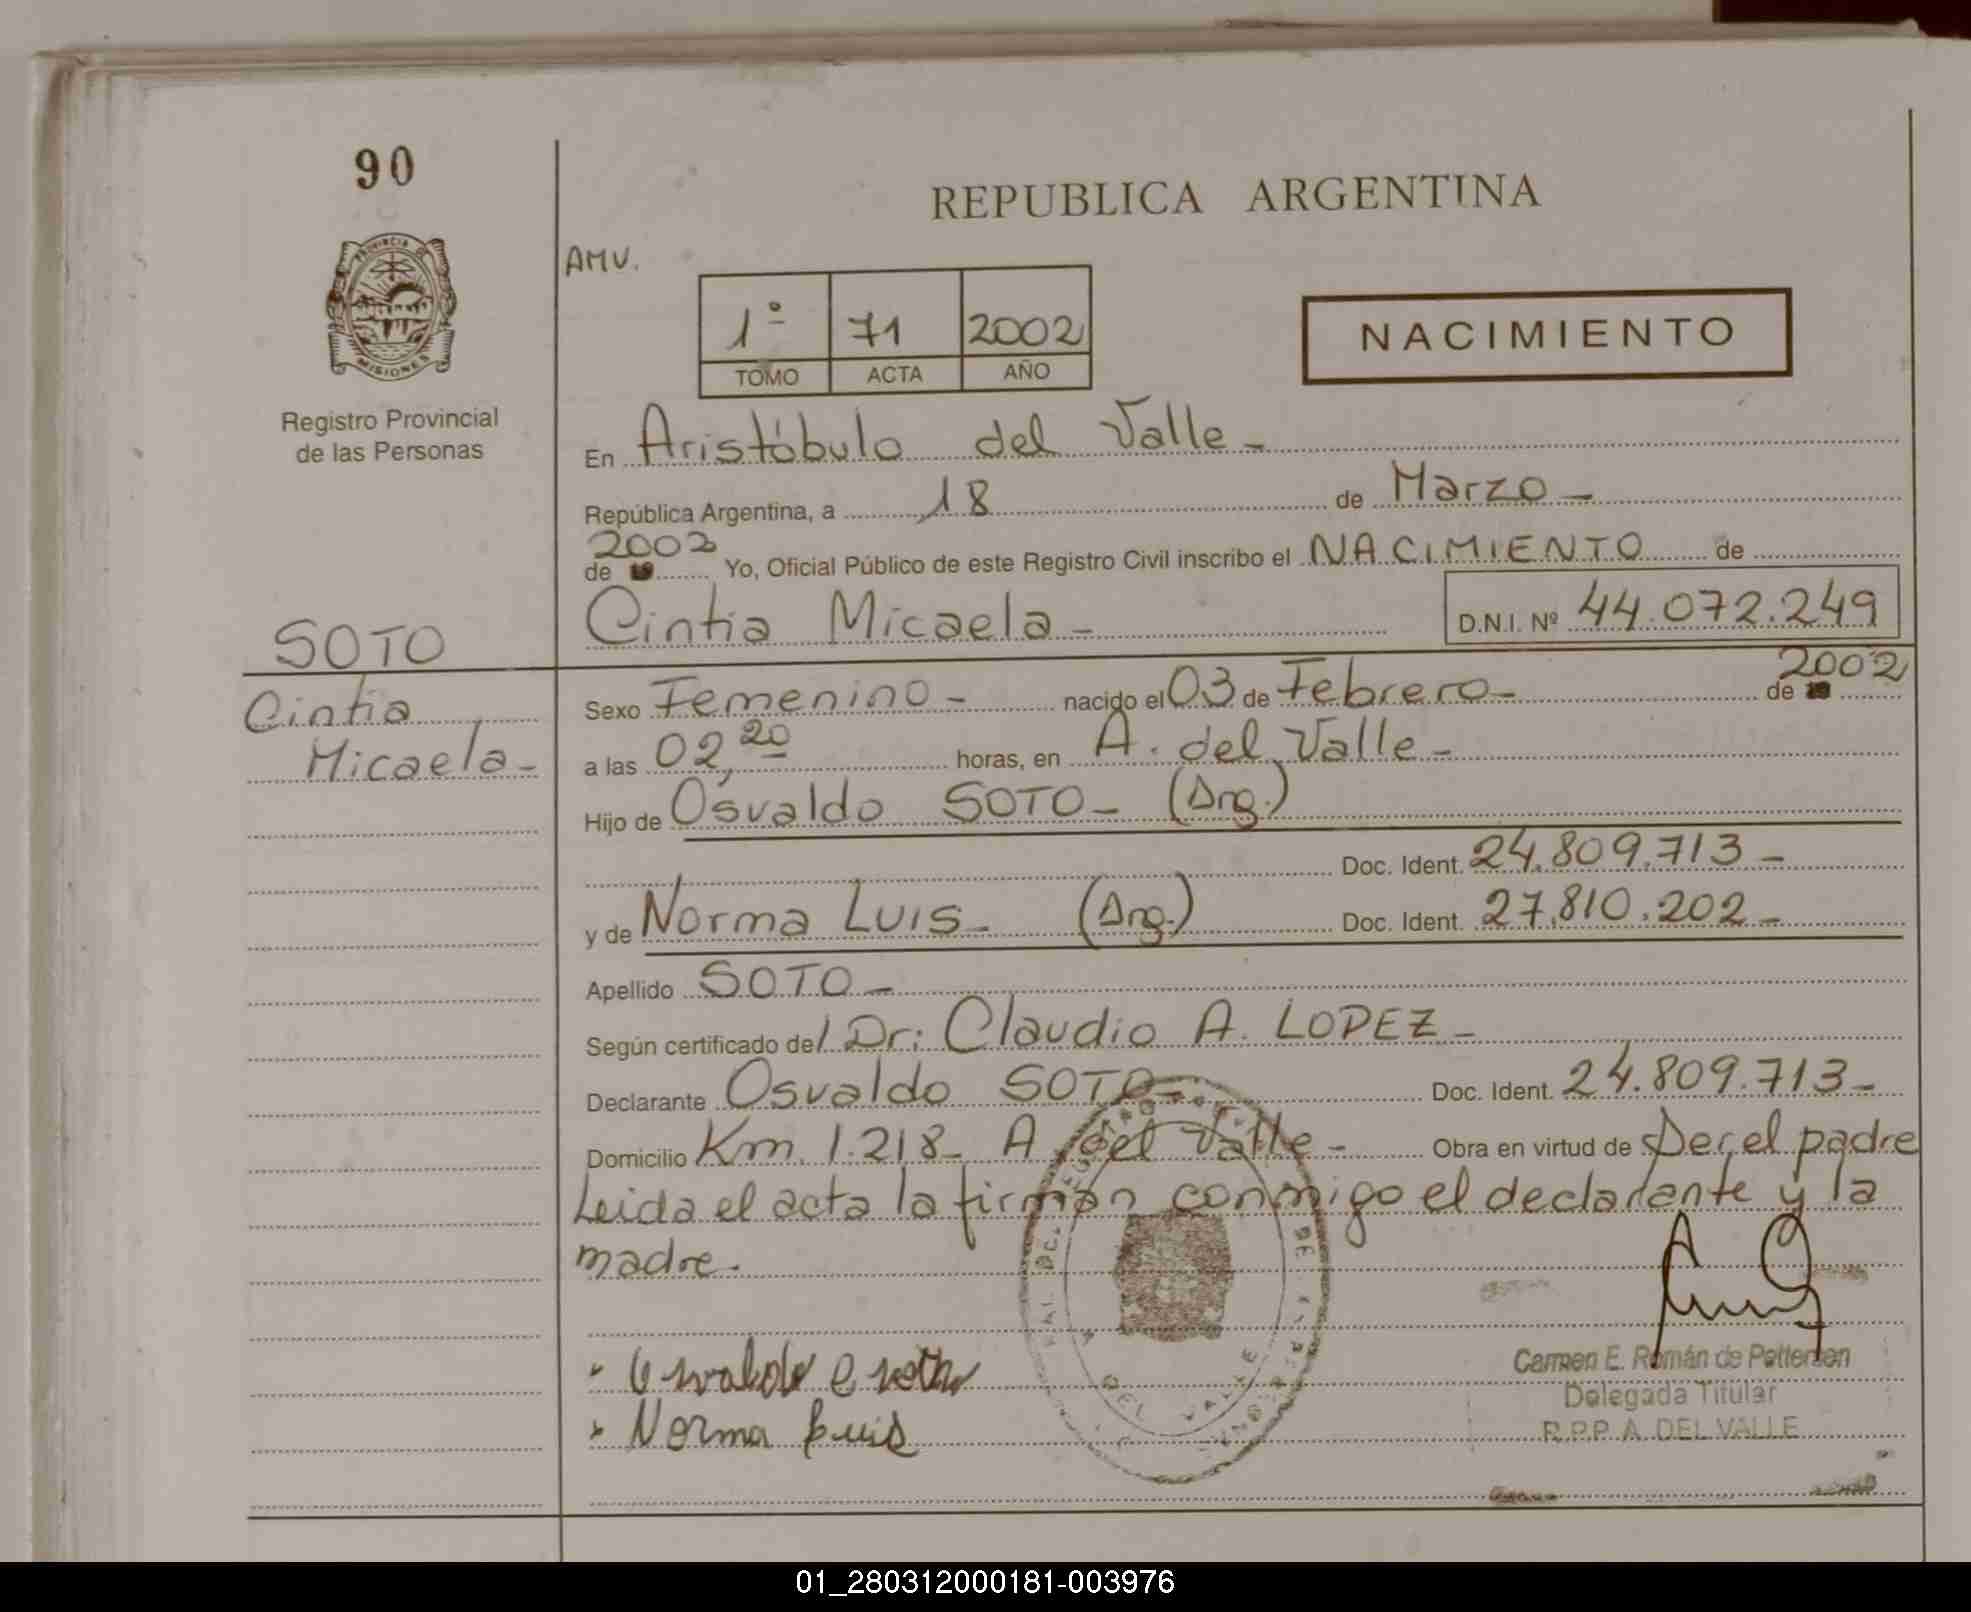 90
REPUBLICA ARGENTINA
PROVINCIA DE
MISIONES
Registro Provincial
de las Personas
AMV.
1º 71 2002
TOMO ACTA AÑO
NACIMIENTO
En Aristóbulo del Valle -
República Argentina, a 18 de Marzo -
2002
de 19 Yo, Oficial Público de este Registro Civil inscribo el NACIMIENTO de
Cintia Micaela - D.N.I. Nº 44.072.249
SOTO
Cintia
Micaela -
Sexo Femenino - nacido el 03 de Febrero - de 19 2002
a las 02,20 horas, en A. del Valle -
Hijo de Osvaldo SOTO - (Arg.)
Doc. Ident. 24.809.713 -
y de Norma LUIS - (Arg.) Doc. Ident. 27.810.202 -
Apellido SOTO -
Según certificado del Dr: Claudio A. LOPEZ -
Declarante Osvaldo SOTO - Doc. Ident. 24.809.713 -
Domicilio Km. 1.218 - A. del Valle - Obra en virtud de Ser el padre
Leida el acta la firman conmigo el declarante y la
madre.
Norma Luis
Carmen E. Román de Pettersen
Delegada Titular
R.P.P. A. DEL VALLE
DEL VALLE
01_280312000181-003976